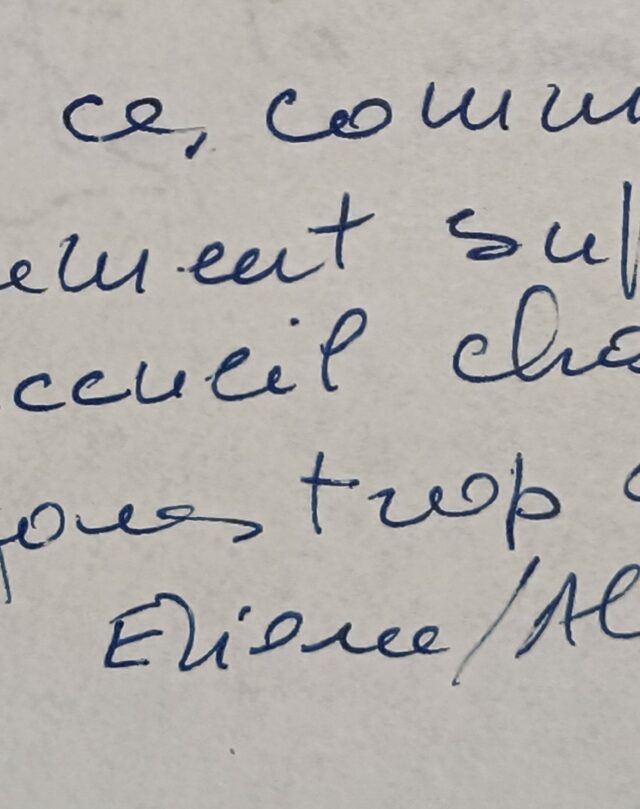 ce, comm
ement sup
ccueil cha
trop
Eliane/Al